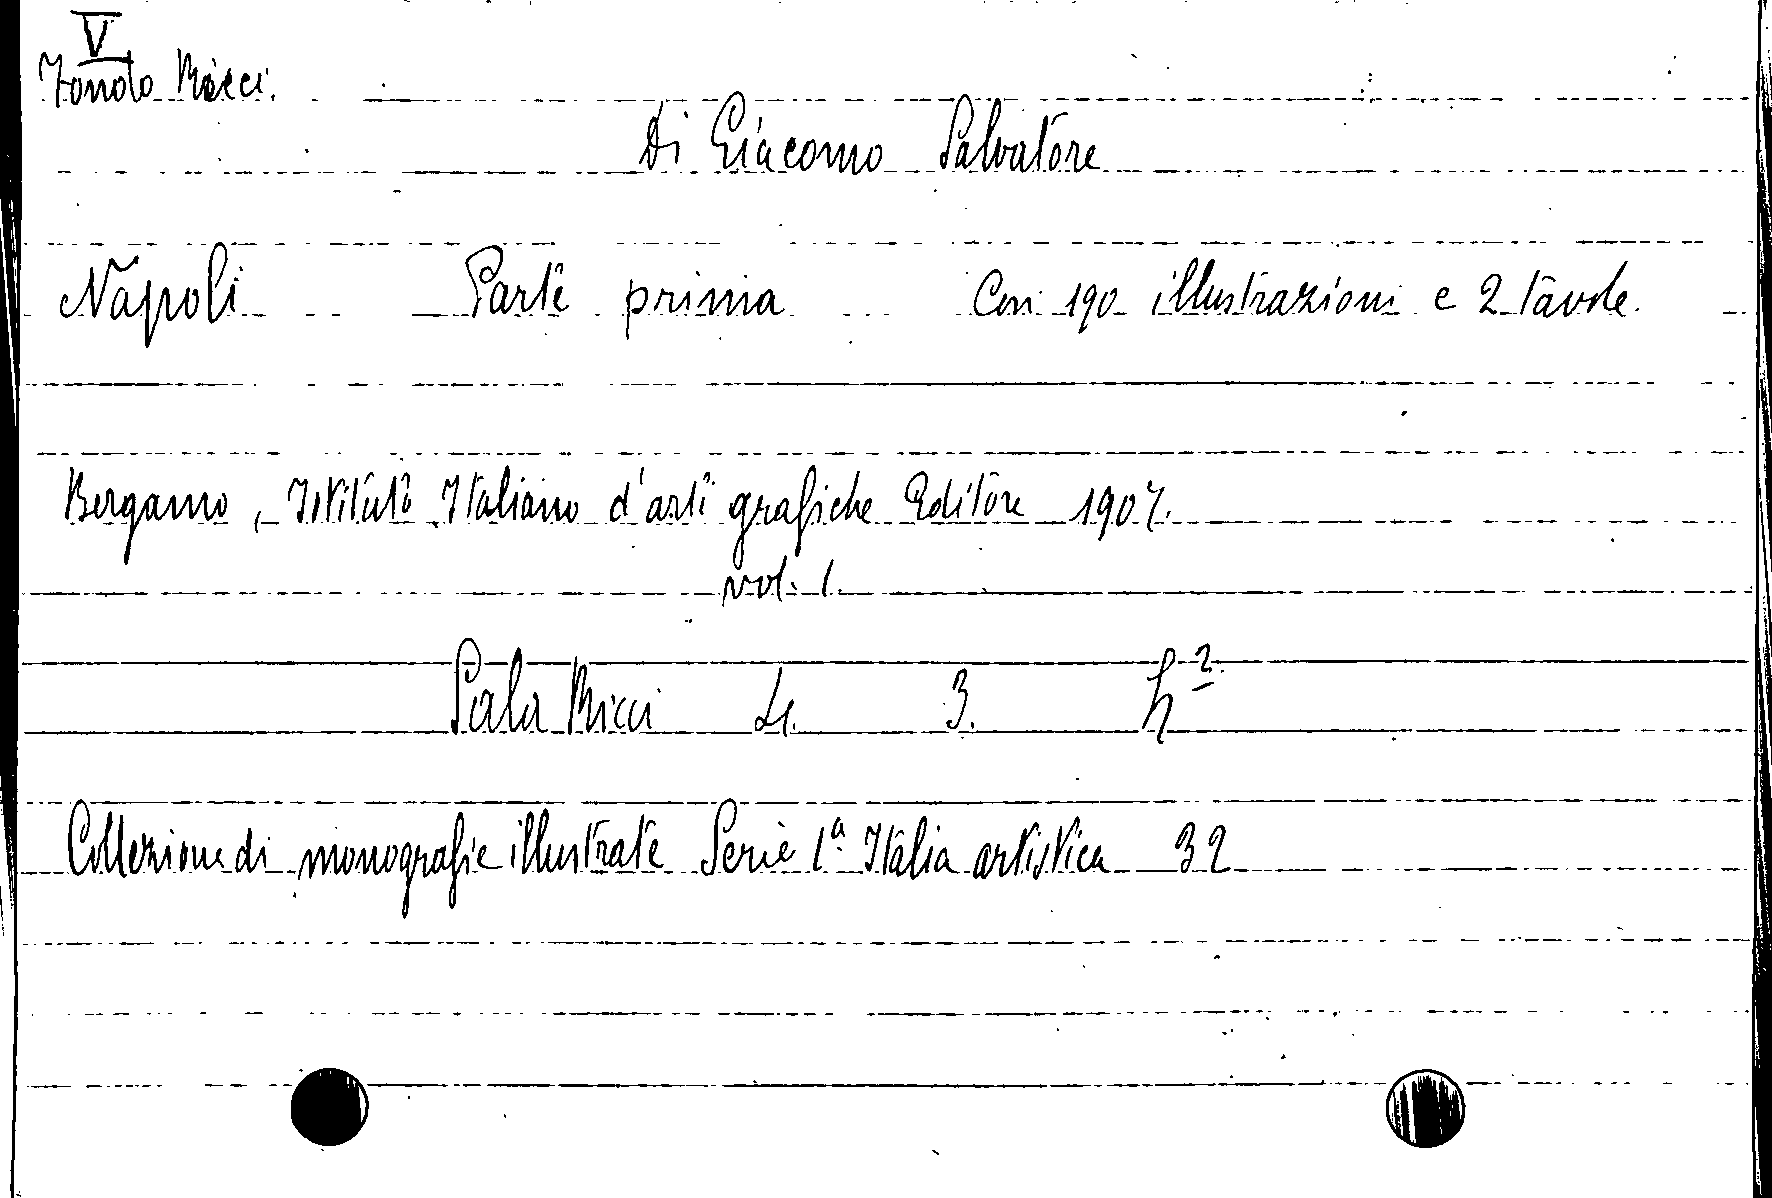 V
Fondo Ricci.
Di Giacomo Salvatore
Napoli Parte prima Con 190 illustrazioni e 2 tavole.
Bergamo, Istituto Italiano d'arti grafiche Editore 1907.
vol. 1.
Sala Ricci 4. 3. h 2
Collezione di monografie illustrate Serie 1ª Italia artistica 32